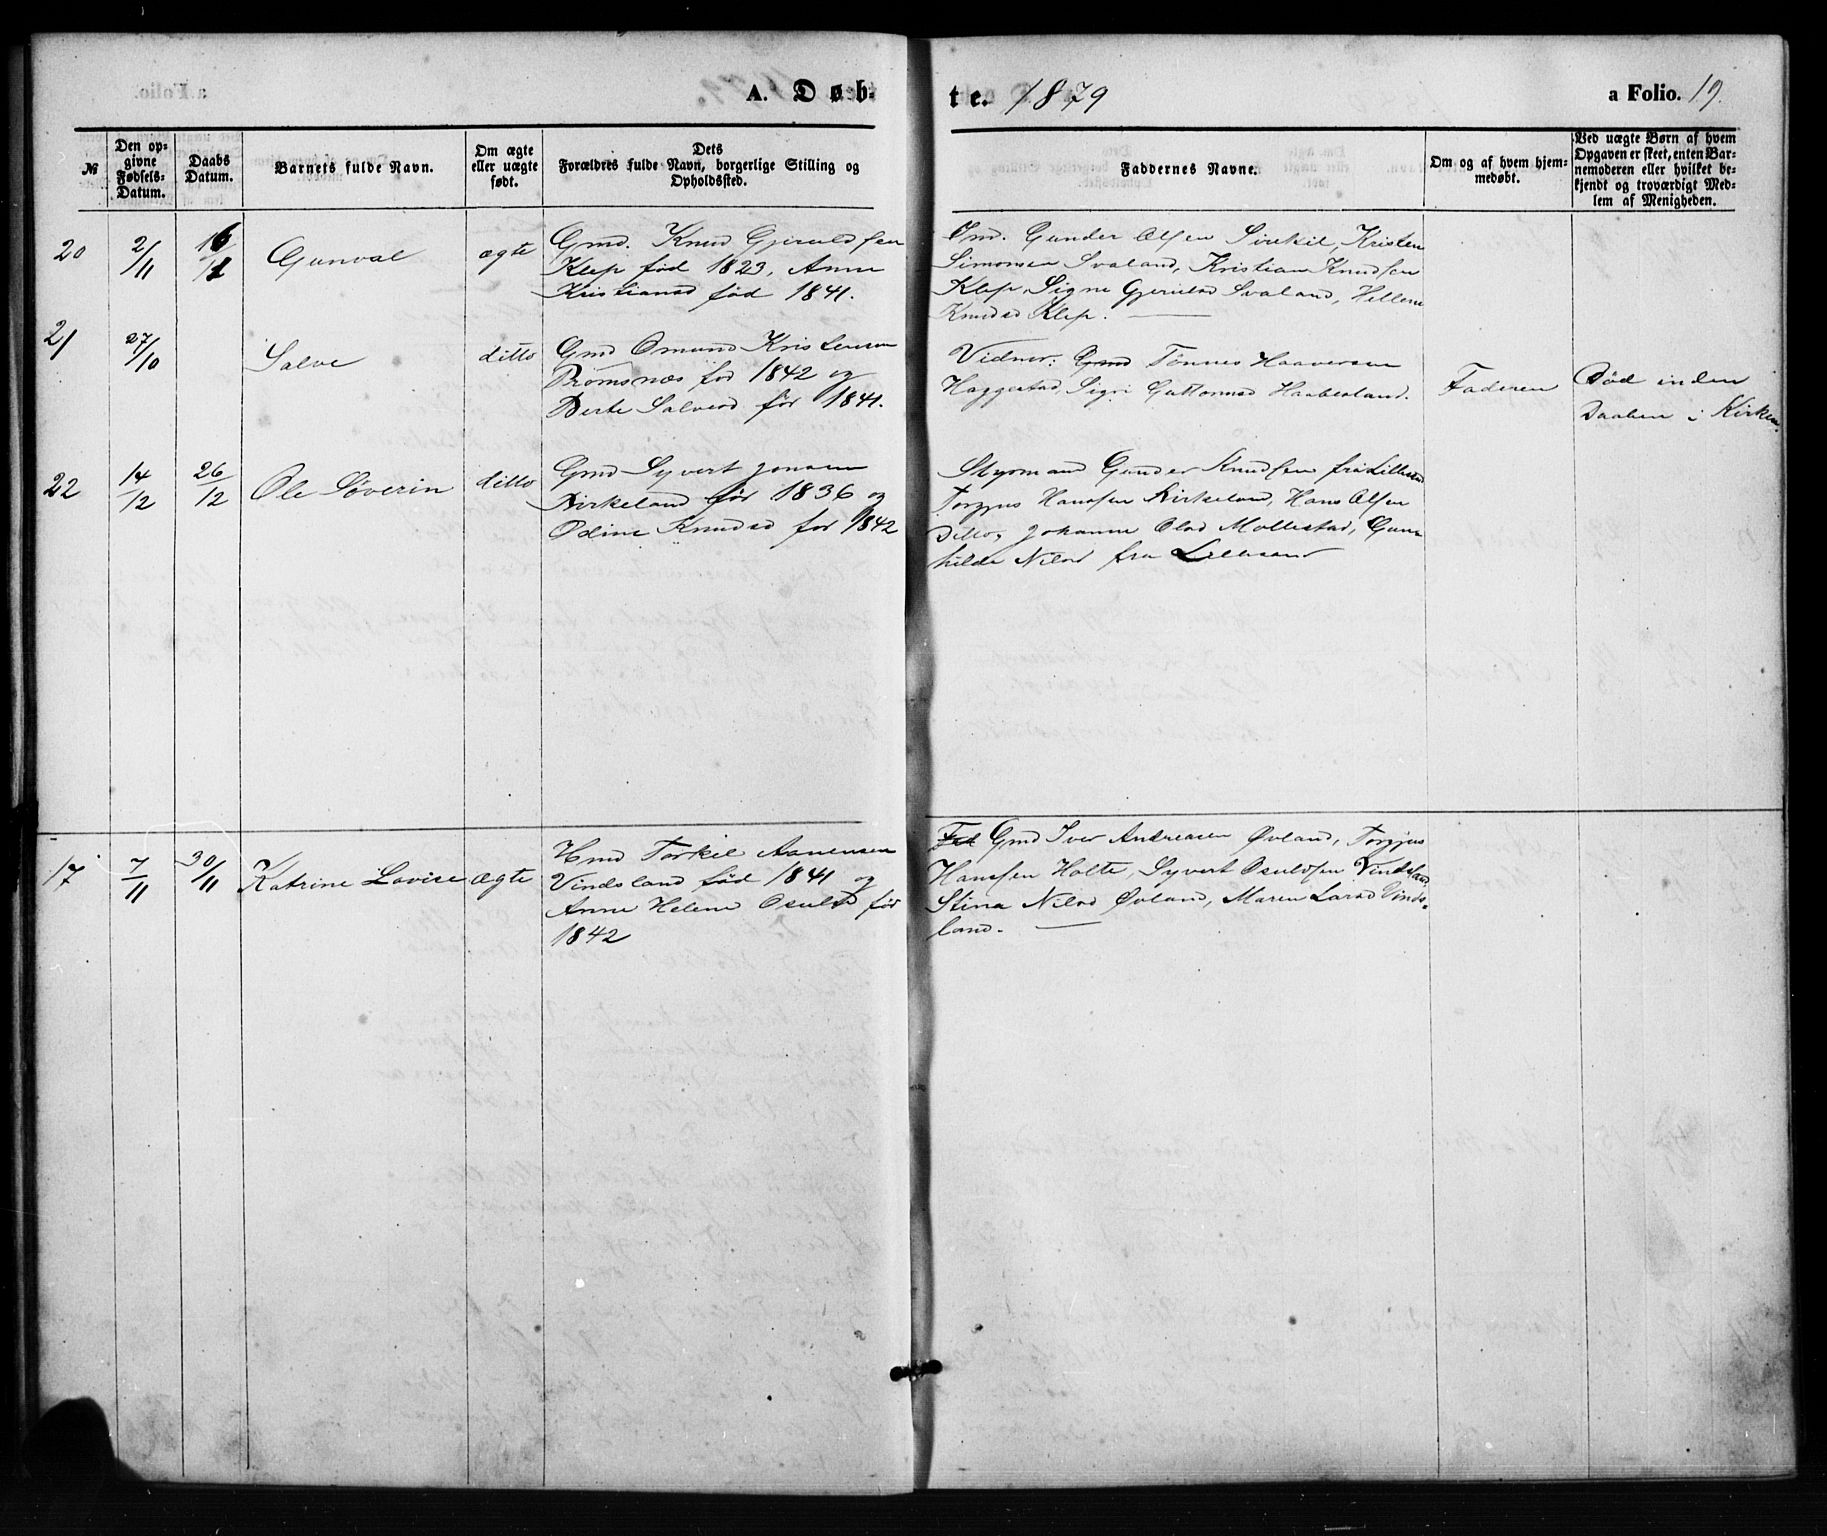 A. Døb-
te. 1879
a Folio. 19.
№
Den op-
givne
Fødsels-
Datum.
Daabs
Datum.
Barnets fulde Navn.
Om ægte
eller uægte
født.
Dets
Forældres fulde Navn, borgerlige Stilling og
Opholdssted.
Faddernes Navne.
Om og af hvem hjem-
medøbt.
Ved uægte Børn af hvem
Opgaven er skeet, enten Bar-
nemoderen eller hvilket be-
kjendt og troværdigt Med-
lem af Menigheden.
20
2/11
16/11
Gunval
ægte
Gmd. Knud Gjeruldsen
Klep fød 1823, Anne
Kristiansd fød 1841.
Gmd. Gunder Olsen Kristen
Simonsen Svaland, Kristian Knudsen
Klep, Signe Gjerulsd Svaland, Hellene
Knudsd Klep.
21
27/10
Salve
ditto
Gmd Omund Kristensen
Romsnæs fød 1842 og
Berte Salvesd før 1841.
Vidner: Gmd Tønnes Haaversen
Haggestad, Sigri Guttormsd Haabesland.
Faderen
Død inden
Daaben i Kirken.
22
14/12
26/12
Ole Søverin
ditto
Gmd Syvert Jonsen
Birkeland før 1836 og
Odine Knudsd før 1842
Styrmand Gunder Knudsen fra Lillesand
Torgjus Hansen Birkeland, Hans Olsen
Ditto, Johanne Olsd Mollestad, Gun-
hilde Nilsd fra Lillesand
17
7/11
30/11
Katrine Lovise
ægte
Hmd Torkil Aanensen
Vindsland fød 1841 og
Anne Helene Osulsd før
1842
Gmd Iver Andreasen Øvland, Torgjus
Hansen Holte, Syvert Osuldsen Vindsland
Stina Nilsd Øvland, Maren Larsd Vinds-
land.